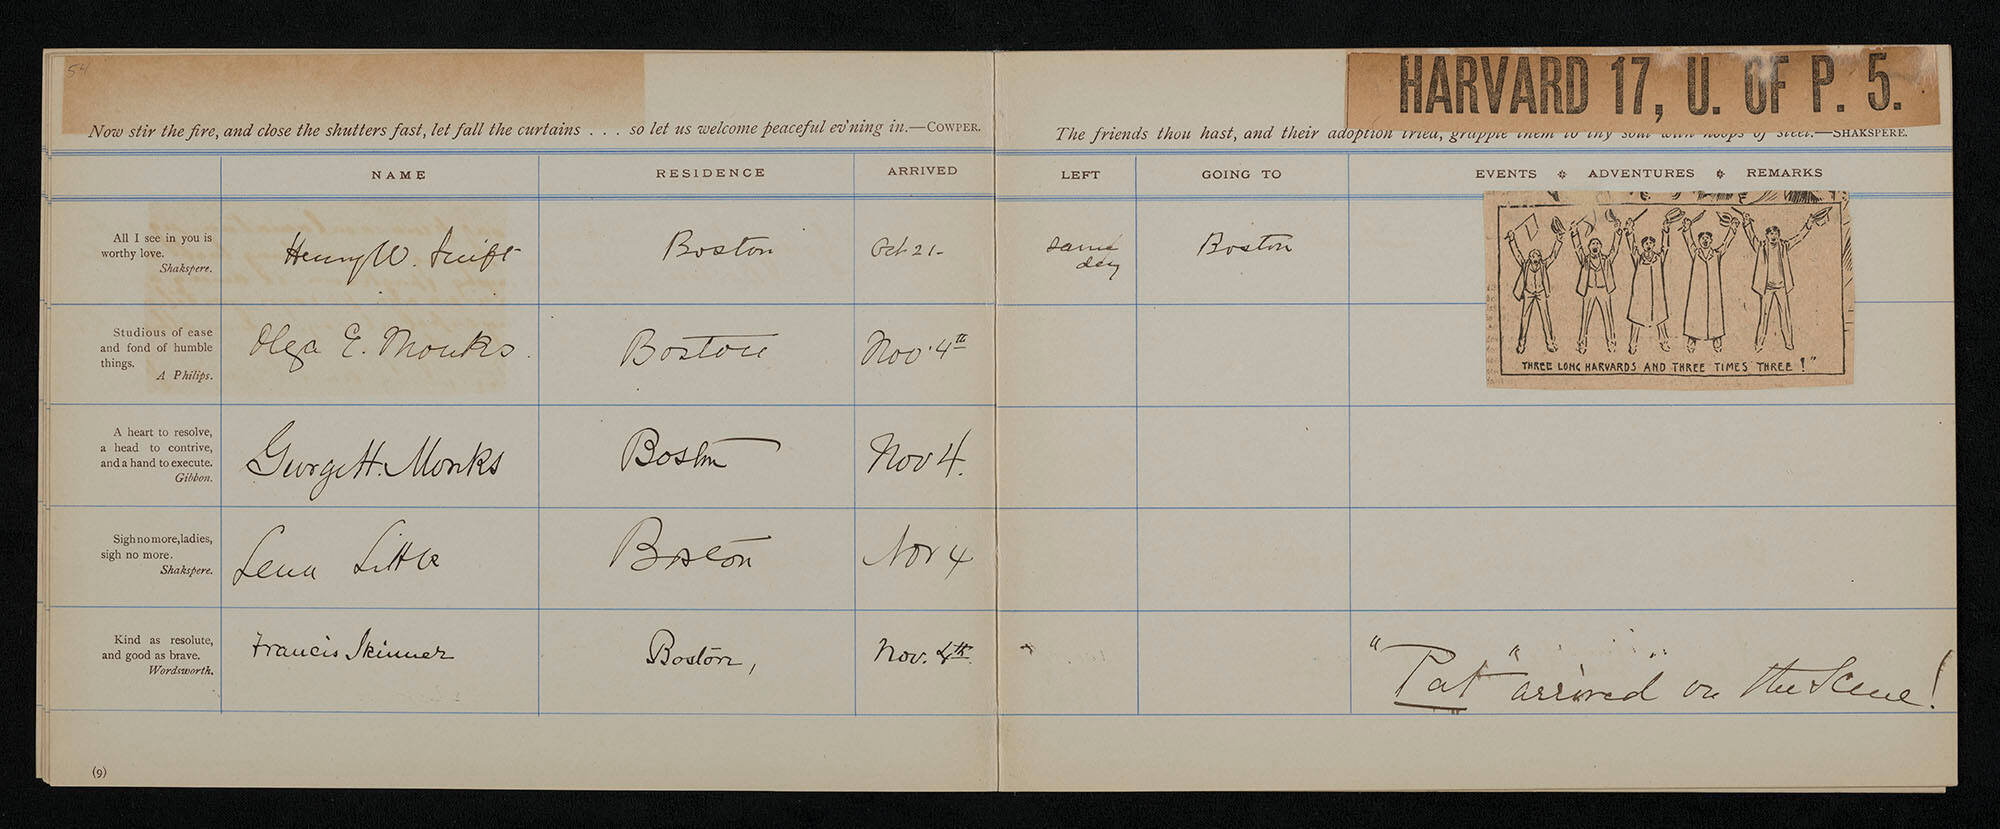 54
HARVARD 17, U. OF P. 5.
Now stir the fire, and close the shutters fast, let fall the curtains . . . so let us welcome peaceful ev'ning in.—COWPER.
The friends thou hast, and their adoption tried, grapple them to thy soul with hoops of steel.—SHAKSPERE.
NAME RESIDENCE ARRIVED LEFT GOING TO EVENTS ADVENTURES REMARKS
All I see in you is
worthy love.
Shakspere.
Henry W. Swift Boston Oct 21- same
day
Boston
THREE LONG HARVARDS AND THREE TIMES THREE!"
Studious of ease
and fond of humble
things.
A Philips.
Olga E. Monks. Boston Nov. 4th
A heart to resolve,
a head to contrive,
and a hand to execute.
Gibbon.
George H. Monks Boston Nov 4.
Sigh no more, ladies,
sigh no more.
Shakspere.
Lena Little Boston Nov 4
Kind as resolute,
and good as brave.
Wordsworth.
Francis Skinner Boston, Nov. 4th
"Pat" arrived on the Scene!
(9)